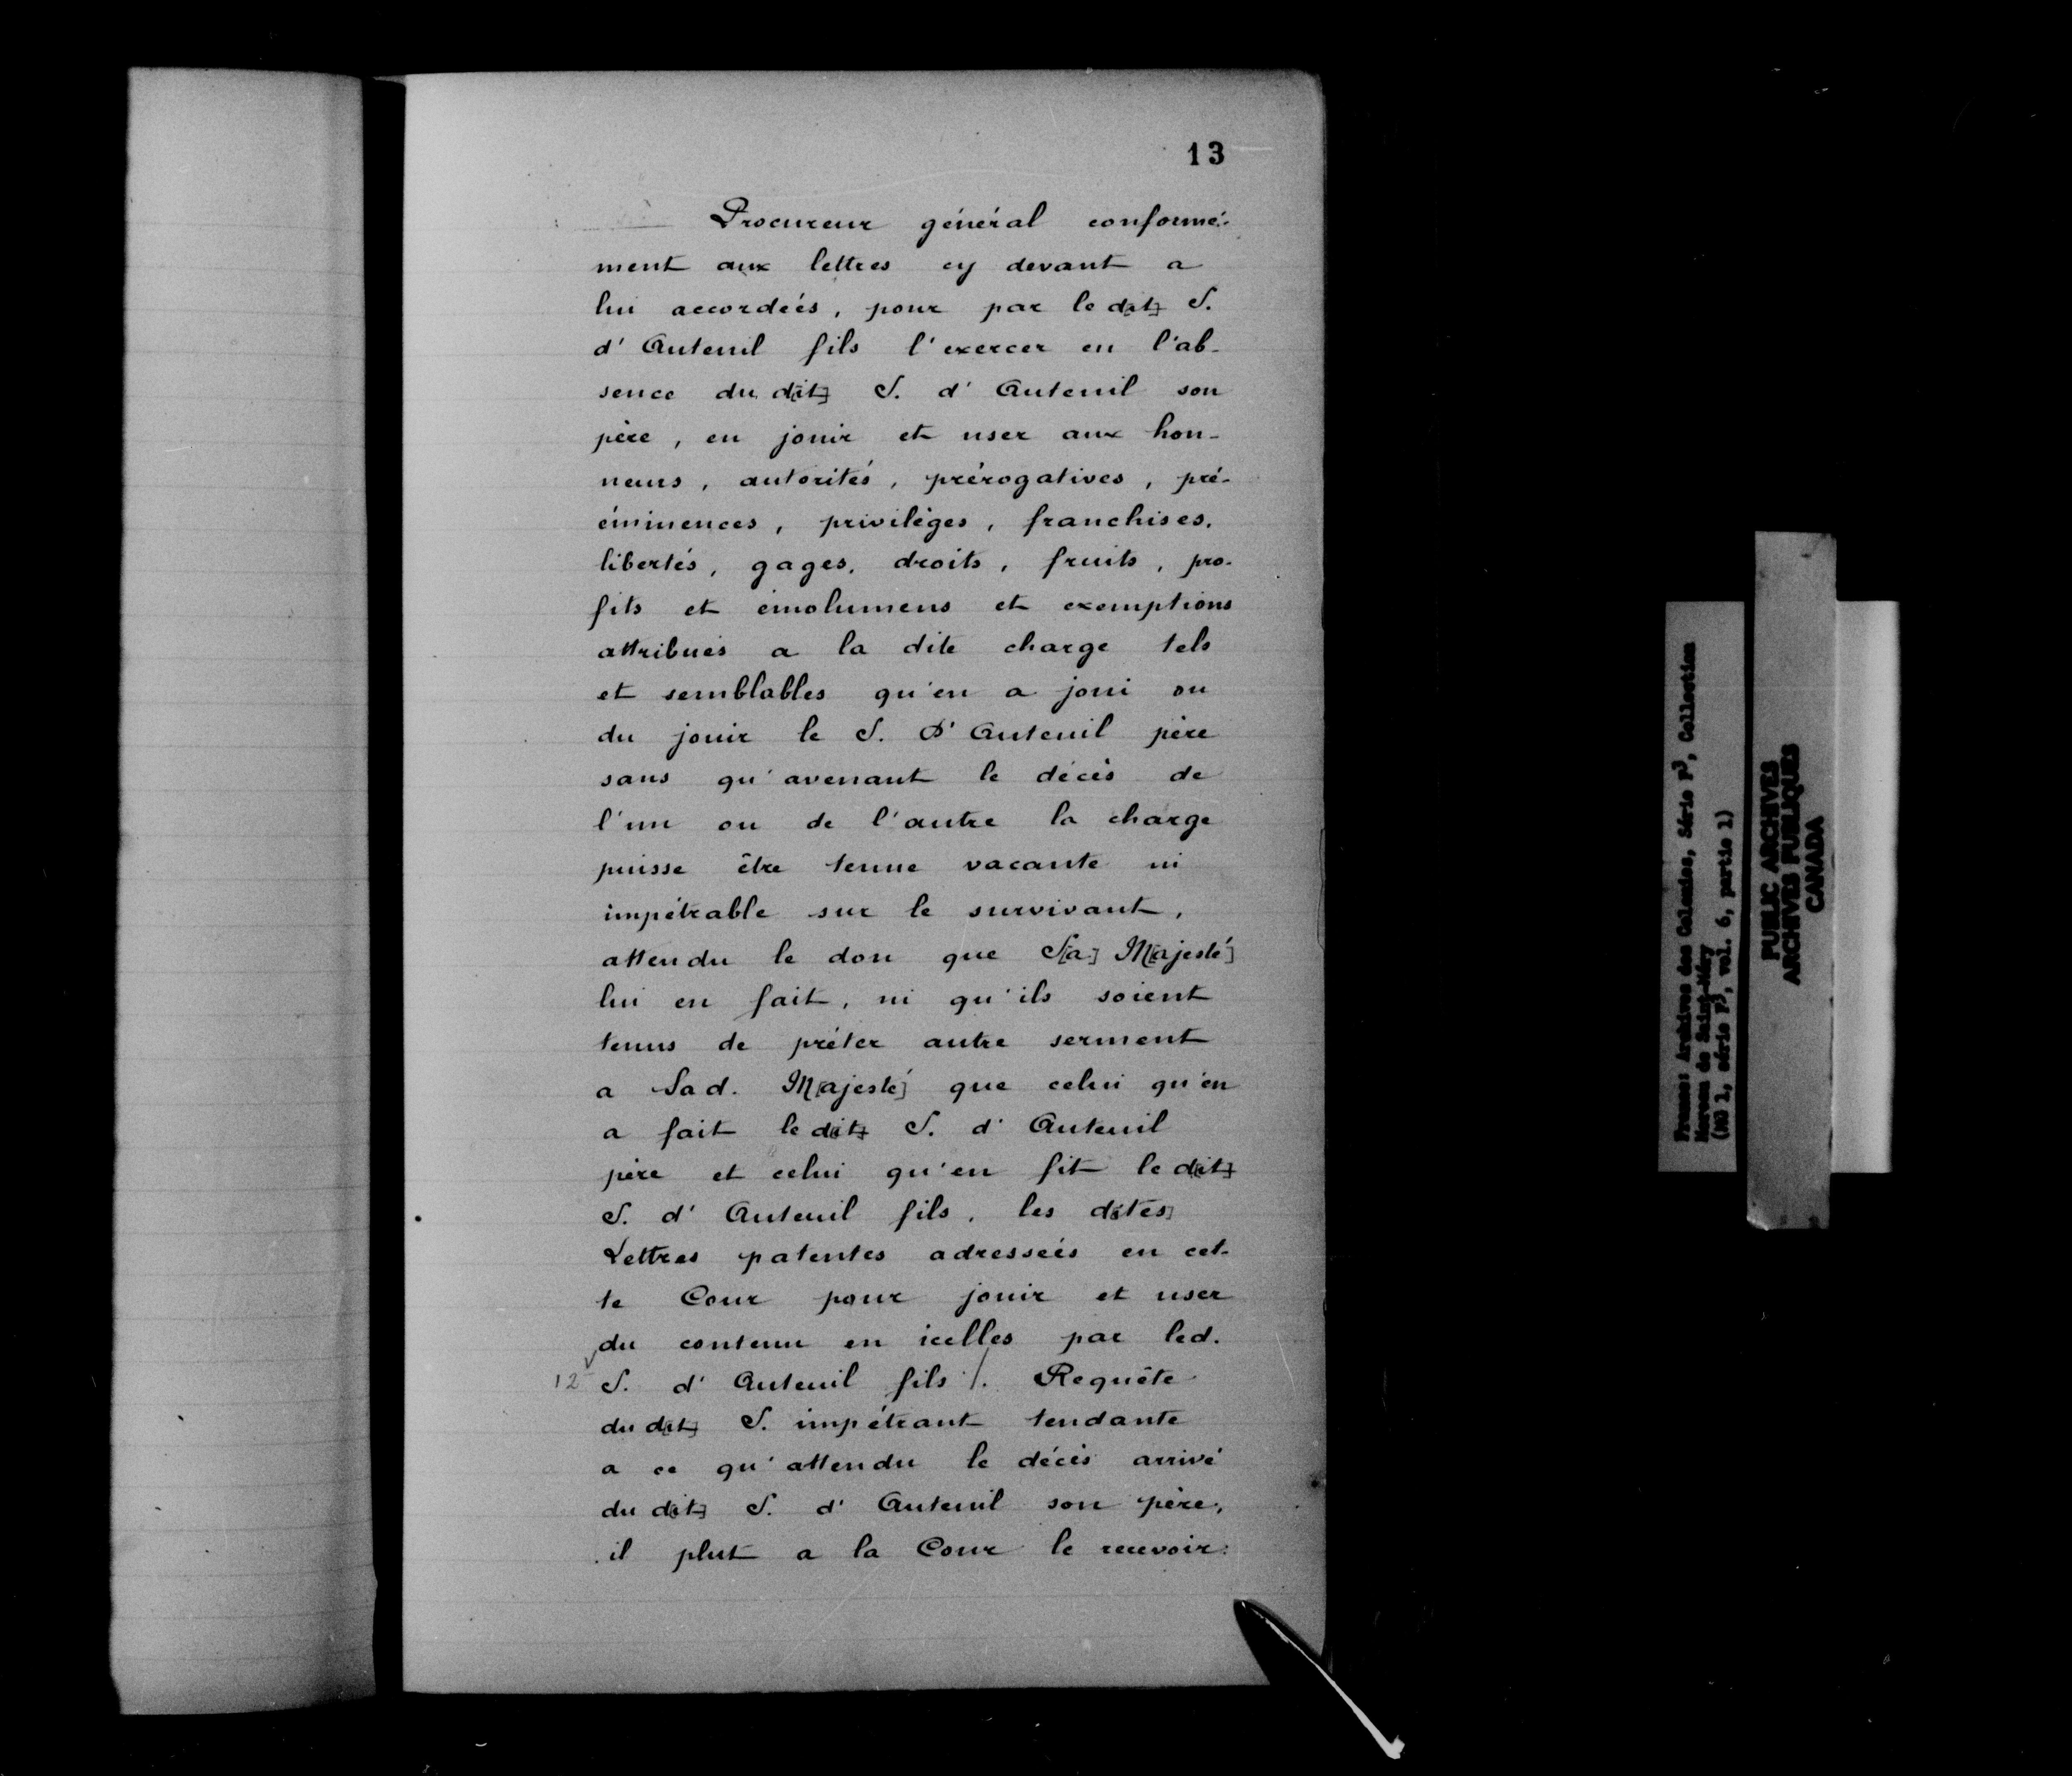 13
Procureur général conformé-
ment aux lettres cy devant a
lui accordées, pour par le d[it] S.
d'Auteuil fils l'exercer en l'ab-
sence du d[it] S. d'Auteuil son
père, en jouir et user aux hon-
neurs, autorités, prérogatives, pré-
éminences, privilèges, franchises,
libertés, gages, droits, fruits, pro-
fits et émolumens et exemptions
attribués a la dite charge tels
et semblables qu'en a joui ou
du jouir le S. D'Auteuil père
sans qu'avenant le décès de
l'un ou de l'autre la charge
puisse être tenue vacante ni
impétrable sur le survivant,
attendu le don que S[a] M[ajesté]
lui en fait, ni qu'ils soient
tenus de prêter autre serment
a Sad. M[ajesté] que celui qu'en
a fait le d[it] S. d'Auteuil
père et celui qu'en fit le d[it]
S. d'Auteuil fils, les d[ites]
Lettres patentes adressées en cet-
te Cour pour jouir et user
du contenu en icelles par led.
12 S. d'Auteuil fils /. Requête
du d[it] S. impétrant tendante
a ce qu'attendu le décès arrivé
du d[it] S. d'Auteuil son père,
il plut a la Cour le recevoir
France: Archives des Colonies, Série F3, Collection
Moreau de Saint-Méry
(MG 1, série F3, vol. 6, partie 1)
PUBLIC ARCHIVES
ARCHIVES PUBLIQUES
CANADA